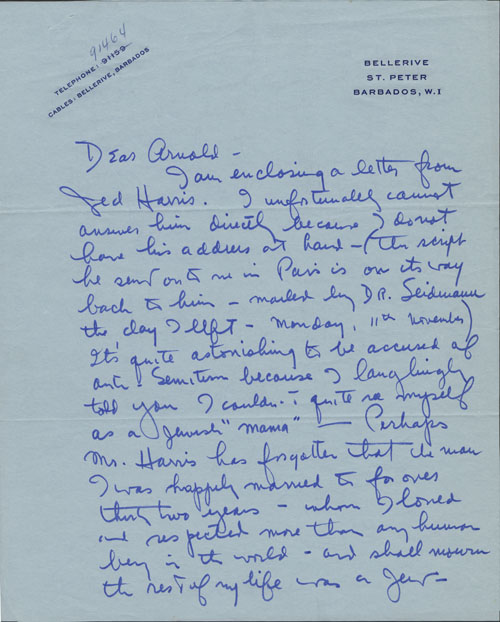 91464
TELEPHONE: 91159
CABLES: BELLERIVE, BARBADOS
BELLERIVE
ST. PETER
BARBADOS, W.I
Dear Arnold -
I am enclosing a letter from
Jed Harris. I unfortunately cannot
answer him directly because I do not
have his address at hand - (the script
he sent on to me in Paris is on its way
back to him - mailed by DR. Seidmann
the day I left - Monday, 11th November)
It's quite astonishing to be accused of
anti-Semitism because I laughingly
told you I couldn't quite see myself
as a Jewish "mama" — Perhaps
Mr. Harris has forgotten that the man
I was happily married to for over
thirty two years - whom I loved
and respected more than any human
being in the world - and shall mourn
the rest of my life was a Jew -